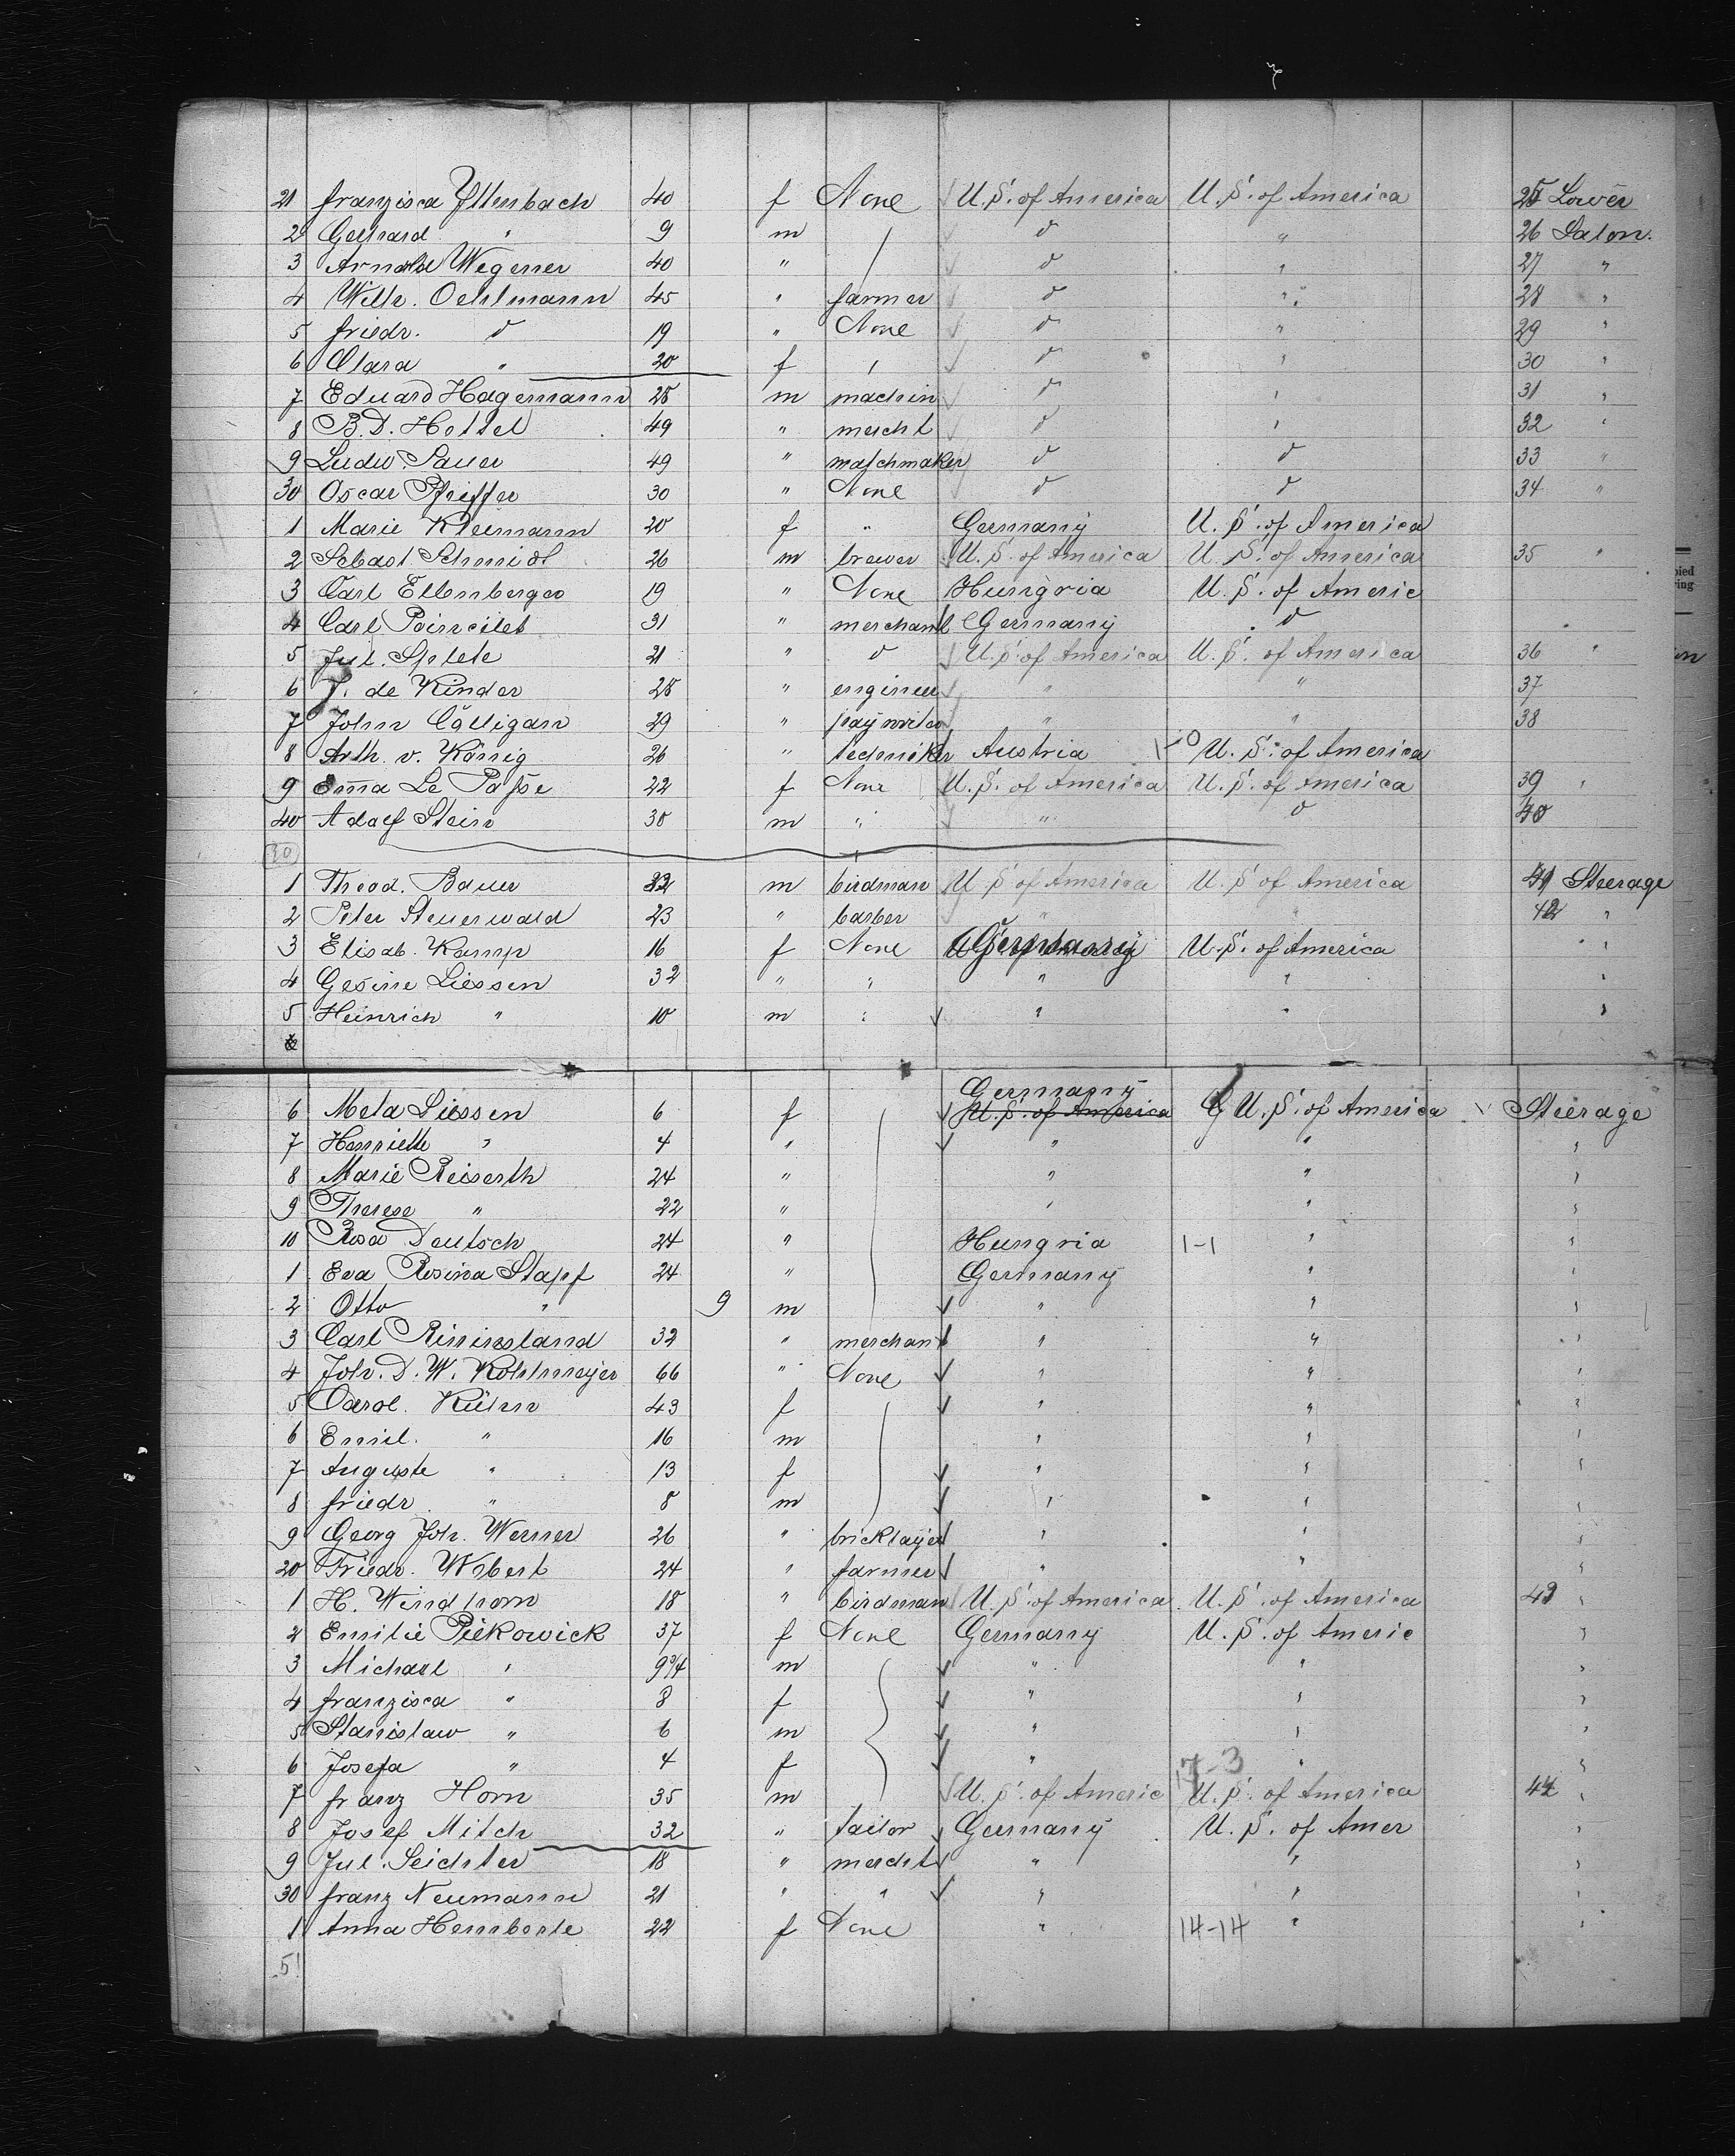 21 Franzisca Yttenbach 40 f None U.S. of America U.S. of America 25 Lower
2 Gerhard " 9 m d " 26 Salon.
3 Arnold Wegener 40 " d " 27 "
4 Wilh. Oehlmann 45 " farmer d " 28 "
5 Friedr. d 19 " None d " 29 "
6 Clara " 20 f " d " 30 "
7 Eduard Hagemann 28 m machin d " 31 "
8 B.D. Hottel 49 " mercht d " 32 "
9 Ludw. Sauer 49 " d d 33 "
30 Oscar Pfeiffer 30 " None d d 34 "
1 Marie Kleimann 20 f " Germany U.S. of America
2 Sebast. Schmidt 26 m brewer U.S. of America U.S. of America 35 "
3 Carl Ellenberger 19 " None Hungria U.S. of Americ
4 Carl Poincilet 31 " merchant Germany d
5 Jul. Splete 21 " d U.S. of America U.S. of America 36 "
6 J. de Kinder 28 " engineer " " 37
7 John Calligan 29 " " " 38
8 Arth. v. König 26 " techniker Austria 1-0 U.S. of America
9 Em̄a Le Passe 22 f None U.S. of America U.S. of America 39 "
40 Adolf Stein 30 m " " d 40
30
1 Theod. Bauer 32 m birdman U.S. of America U.S. of America 41 Steerage
2 Peter Steuerwald 23 " barber " " 42 "
3 Elisab. Kamp 16 f None Germany U.S. of America "
4 Gesine Liessen 32 " " " " "
5 Heinrich " 10 m " " " "
6
Germany
6 Meta Liessen 6 f U.S. of America U.S. of America Steerage
7 Henriette " 4 " " " "
8 Marie Reiserth 24 " " " "
9 Therese " 22 " " " "
10 Rosa Deutsch 24 " Hungria 1-1 " "
1 Eva Rosina Stapf 24 " Germany " "
2 Otto " 9 m " " "
3 Carl 32 " merchant " " "
4 Joh. D. W. Kohlmeyer 66 " None " " "
5 Carol. Kühn 43 f " " "
6 Emil. " 16 m " " "
7 Auguste " 13 f " " "
8 Friedr. " 8 m " " "
9 Georg Joh. Werner 26 " bricklayer " " "
20 Friedr. Wobert 24 " farmer " " "
1 H. Windhorn 18 " birdman U.S. of America U.S. of America 43 "
2 Emilie Piekowick 37 f None Germany U.S. of Americ "
3 Michael " 9 3/4 m " " "
4 Franzisca " 8 f " " "
5 Stanislaw " 6 m " " "
6 Josefa " 4 f " 17-3 " "
7 Franz Horn 35 m U.S. of Americ U.S. of America 44 "
8 Josef Mitch 32 " tailor Germany U.S. of Amer "
9 Jul. Seichter 18 " mercht " " "
30 Franz Neumann 21 " " " " "
1 Anna Hemberle 22 f None " 14-14 " "
51